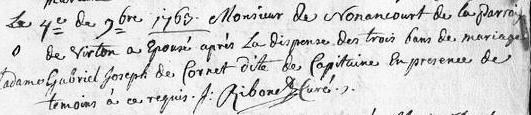 Le 4e de 9bre 1763. Monsieur de Nonancourt de la Parroi
o de Virton a Epousé après La dispense des trois bans de mariage
adame Gabriel Joseph de Cornet dite de Capitaine En presence de
témoins à ce requis. J: Ribonet Curé.